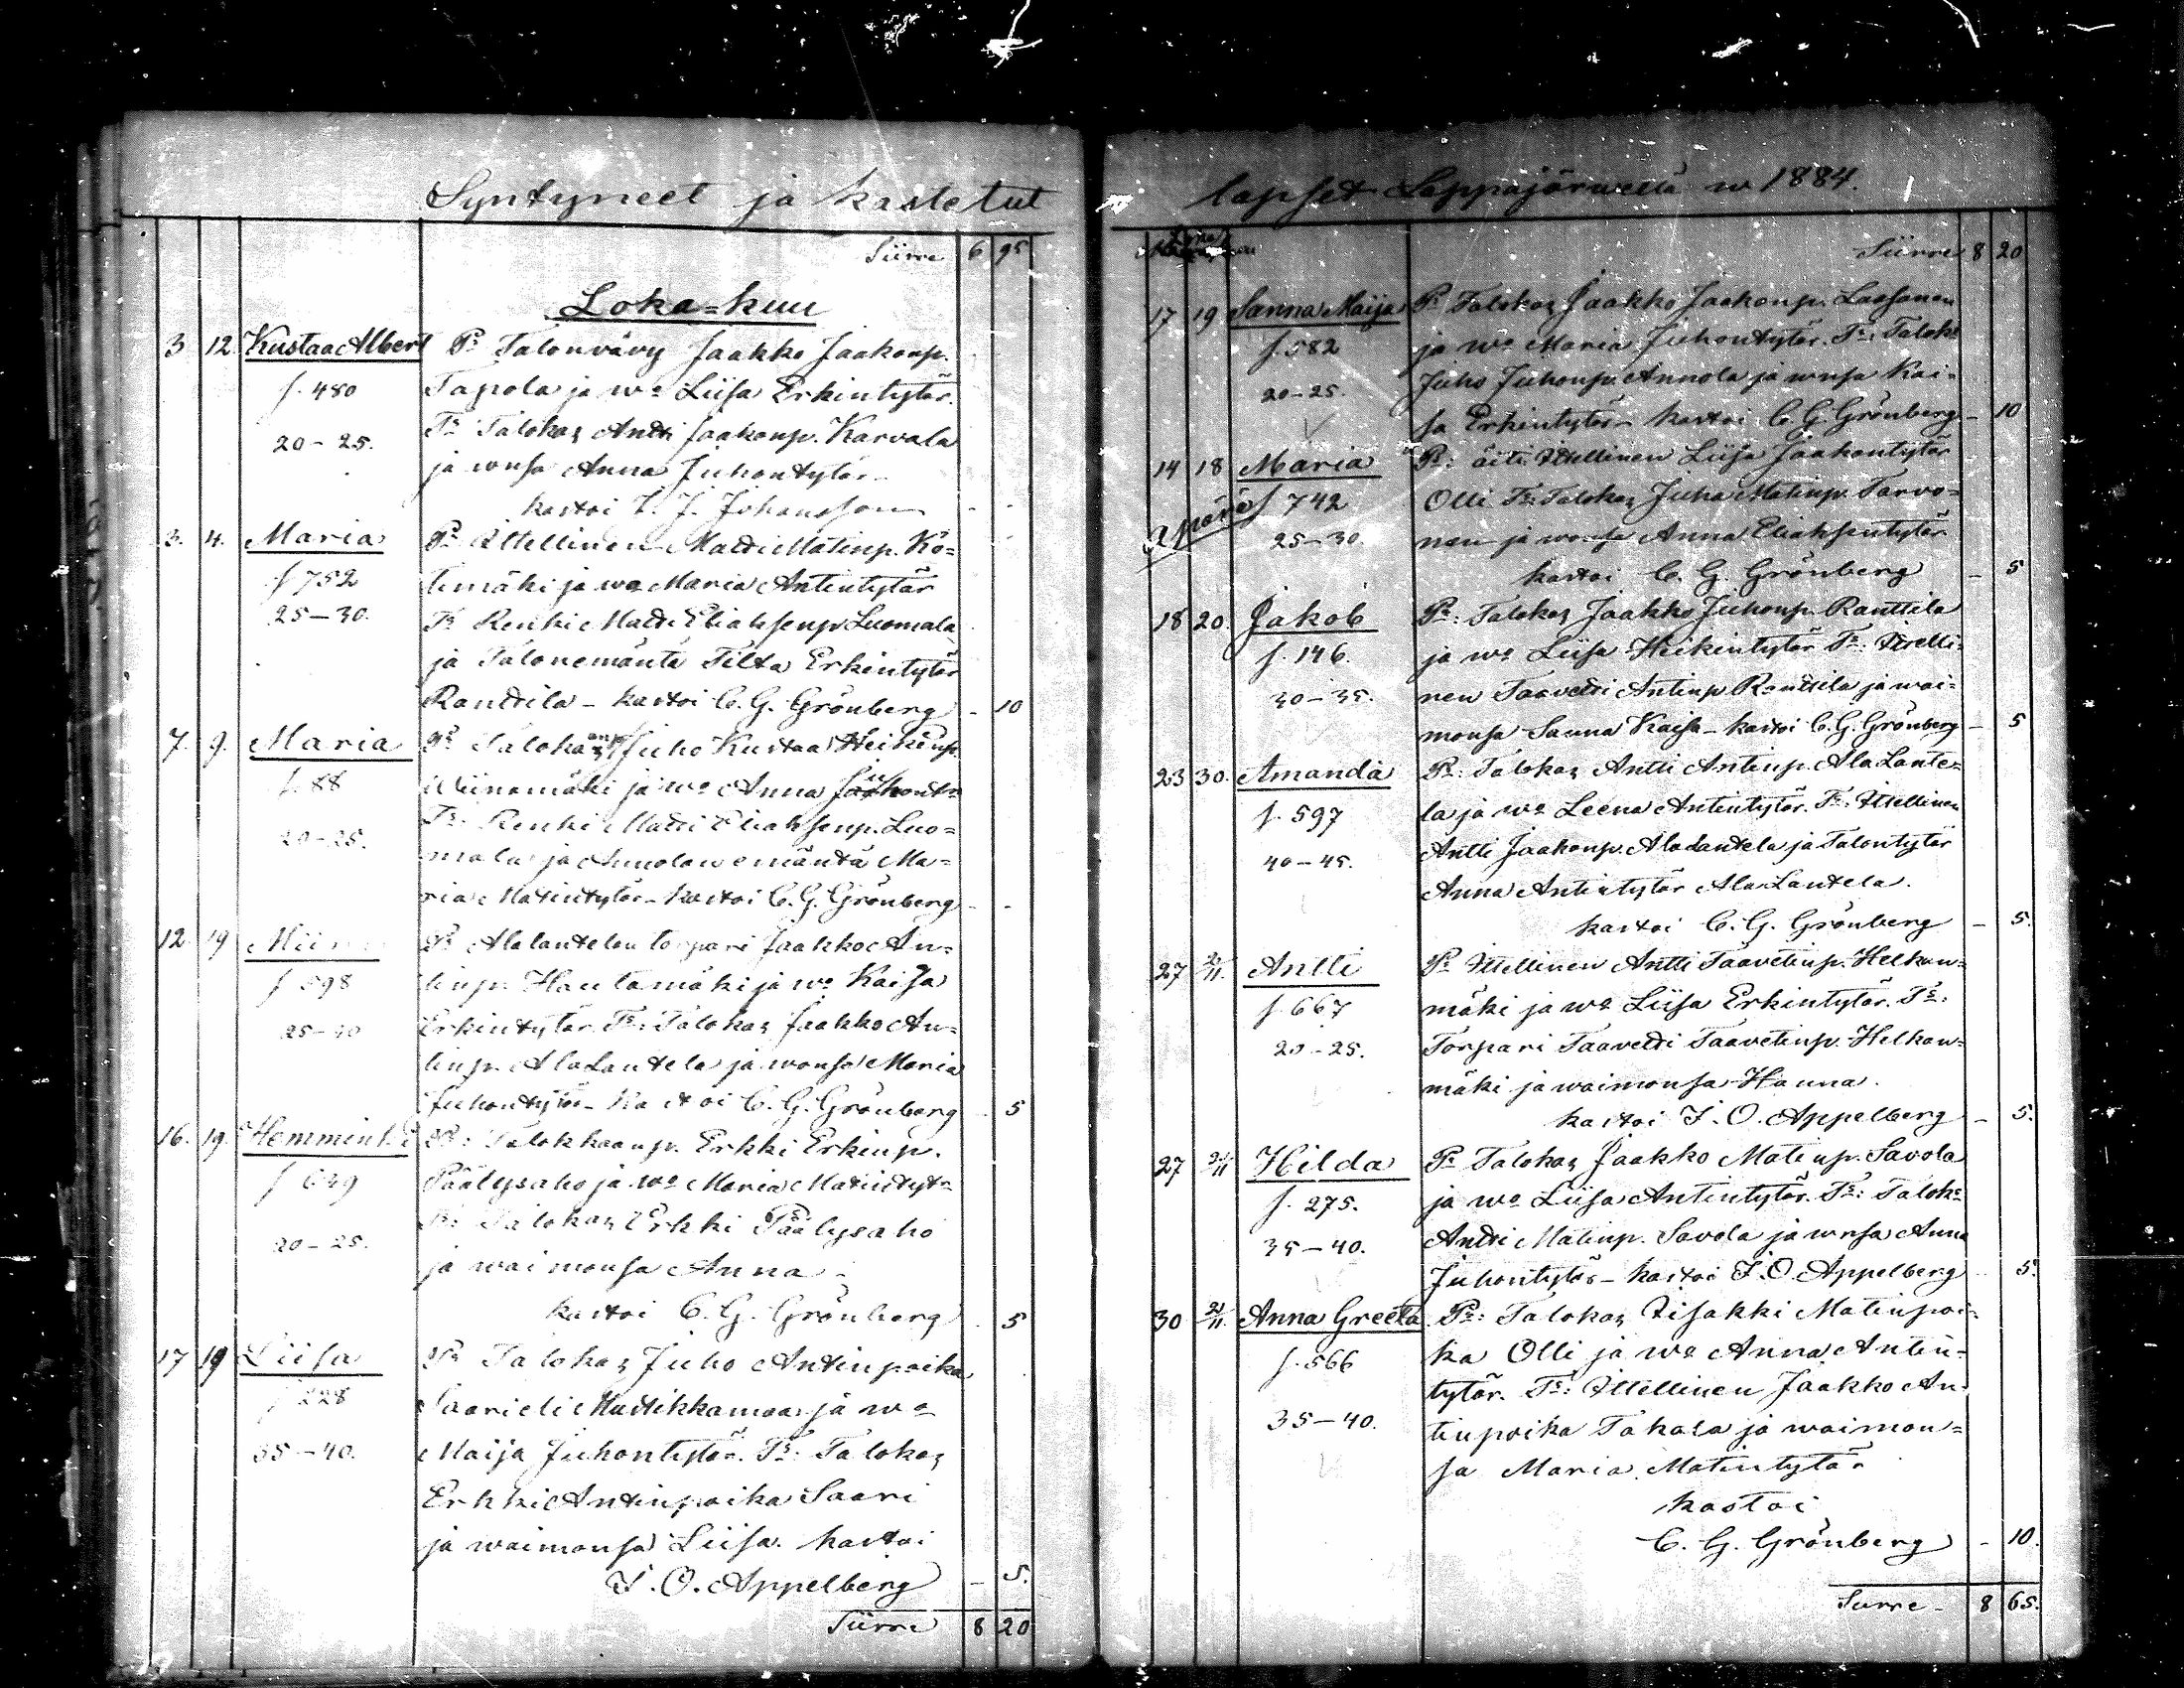 Syntyneet ja kastetut
Siirre 6 95
Loka=kuu
3 12 Kustaa Albert Ps Talonvävy Jaakko Jaakonp.
f. 480 Tapola ja wa Liisa Erkintytär.
20-25. Ts Talokas Antti Jaakonp. Karvala
ja wnsa Anna Juhontytär-
kastoi Johansson
3. 4. Maria Ps Ittellinen Matti Matinp. Ko=
f 752 timäki ja wa Maria Antintytär
25-30. Ts Renki Matti Eliaksenp Luomala
ja Talonemäntä Tilta Erkintytär
Ranttila - kastoi C. G. Grönberg - 10
7. 9. Maria Ps Juho Kustaa Heikinp.
f. 88 Wiinamäki ja wa Anna
20-25. Ts. Renki Matti Eliaksenp. Luo=
mala ja Annolan emäntä Ma=
ria Matintytär - kastoi C. G. Grönberg - -
12. 19 Ps Alalantelan torpari Jaakko An=
f 598 tinp. Hautamäki ja wa Kaisa
Erkintytär Ts: Talokas Jaakko An=
tinp. AlaLantela ja wonsa Maria
Juhontytär - Kastoi C. G. Grönberg - 5
16. 19. Hemminki Ps: Talokkaanp. Erkki Erkinp.
Päälysaho ja wa Maria Matintyt=
20-25. Ts: Talokas Erkki Päälysaho
ja waimonsa Anna -
kastoi C. G. Grönberg . 5
17 19 Liisa Ps Talokas Juho Antinpoika
f 228 Saari eli Mustikkamaa ja wa
35-40. Maija Juhontytär. Ts: Talokas
Erkki Antinpoika Saari
ja waimonsa Liisa. kastoi
Appelberg - 5.
Siirre 8 20
lapset Lappajärwellä w 1884.
Siirre 8 20
17 19 Sanna Maija Ps Talokas Jaakko Jaakonp.
f. 582 ja wa Maria Juhontytär. Ts: Talok=
20-25. Juho Juhonp. Annola ja wnsa Kai=
sa Erkintytär kastoi C. G. Grönberg - 10
14 18 Maria Ps: äiti Ittellinen Liisa Jaakontytär
äpärä f 742 Olli Ts: Talokas Juha Matinp. Tarvo=
25-30. nen ja wonsa Anna Eliaksentytär
kastoi C. G. Grönberg - 5
18 20. Jakob Ps: Talokas Jaakko Juhonp. Ranttila
f. 146. ja wa Liisa Heikintytär Ts: Itselli=
30-35. nen Taavetti Antinp Ranttila ja wai=
monsa Sanna Kaisa - kastoi C. G. Grönberg - 5
23 30. Amanda Ps: Talokas Antti Antinp. Ala Lante=
f. 597 la ja wa Leena Antintytär. Ts: Ittellinen
40-45. Antti Jaakonp. Alalantela ja Talontytär
Anna Antintytär Ala Lantela.
kastoi C. G. Grönberg - 5.
27 2/11. Antti Ps Ittellinen Antti Taavetinp. Helkan=
f 667 mäki ja wa Liisa Erkintytär. Ts:
20-25. Torpari Taavetti Taavetinp. Helkan=
mäki ja waimonsa Hanna.
kastoi Appelberg - 5.
27 2/11 Hilda Ps Talokas Jaakko Matinp. Savola
f. 275. ja wa Liisa Antintytär. Ts: Talok=
35-40. Antti Matinp. Savola ja wnsa Anna
Juhontytär - kastoi Appelberg - 5.
30 2/11. Anna Greeta Ps: Talokas Iisakki Matinpoi=
f. 566 ka Olli ja wa Anna Antin=
tytär. Ts: Ittellinen Jaakko An=
35-40. tinpoika Takala ja waimon=
sa Maria Matintytär
kastoi
C. G. Grönberg - 10.
Siirre - 8 65.